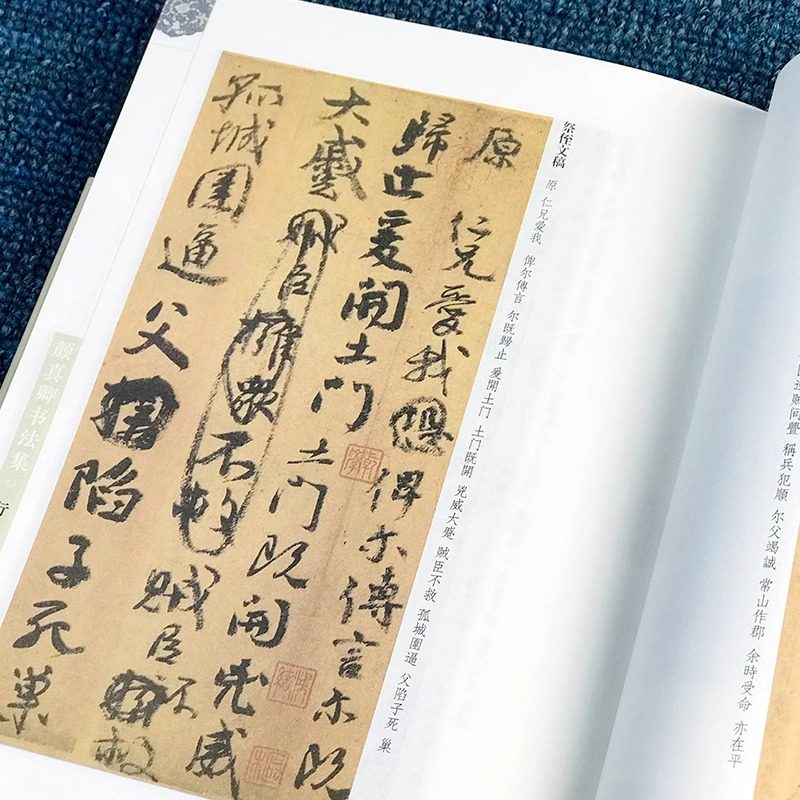 賊间釁 稱兵犯順 尔父竭誠 常山作郡 余時受命 亦在平
祭侄文稿
原 仁兄愛我 俾尔傳言 尔既歸止 爰開土门 土门既開 兇威大蹙 賊臣不救 孤城圍逼 父陷子死 巢
原
仁兄愛我俾尔傳言尔既
歸止爰開土门土门既開凶威
大蹙賊臣擁眾不救賊臣不救
孤城圍逼父陷子死巢
颜真卿书法集
行